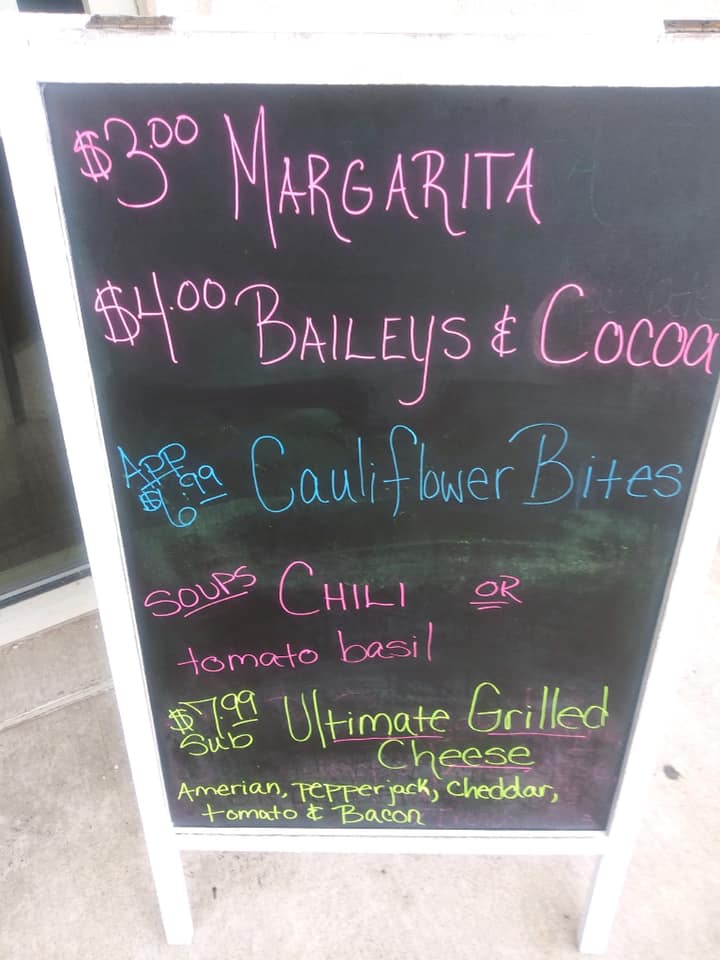 $3.00 MARGARITA
$4.00 BAILEYS & COCOA
APP
$6.99 Cauliflower Bites
SOUPS CHILI OR
tomato basil
$7.99 Ultimate Grilled
Sub Cheese
Amerian, Pepperjack, Cheddar,
tomato & Bacon